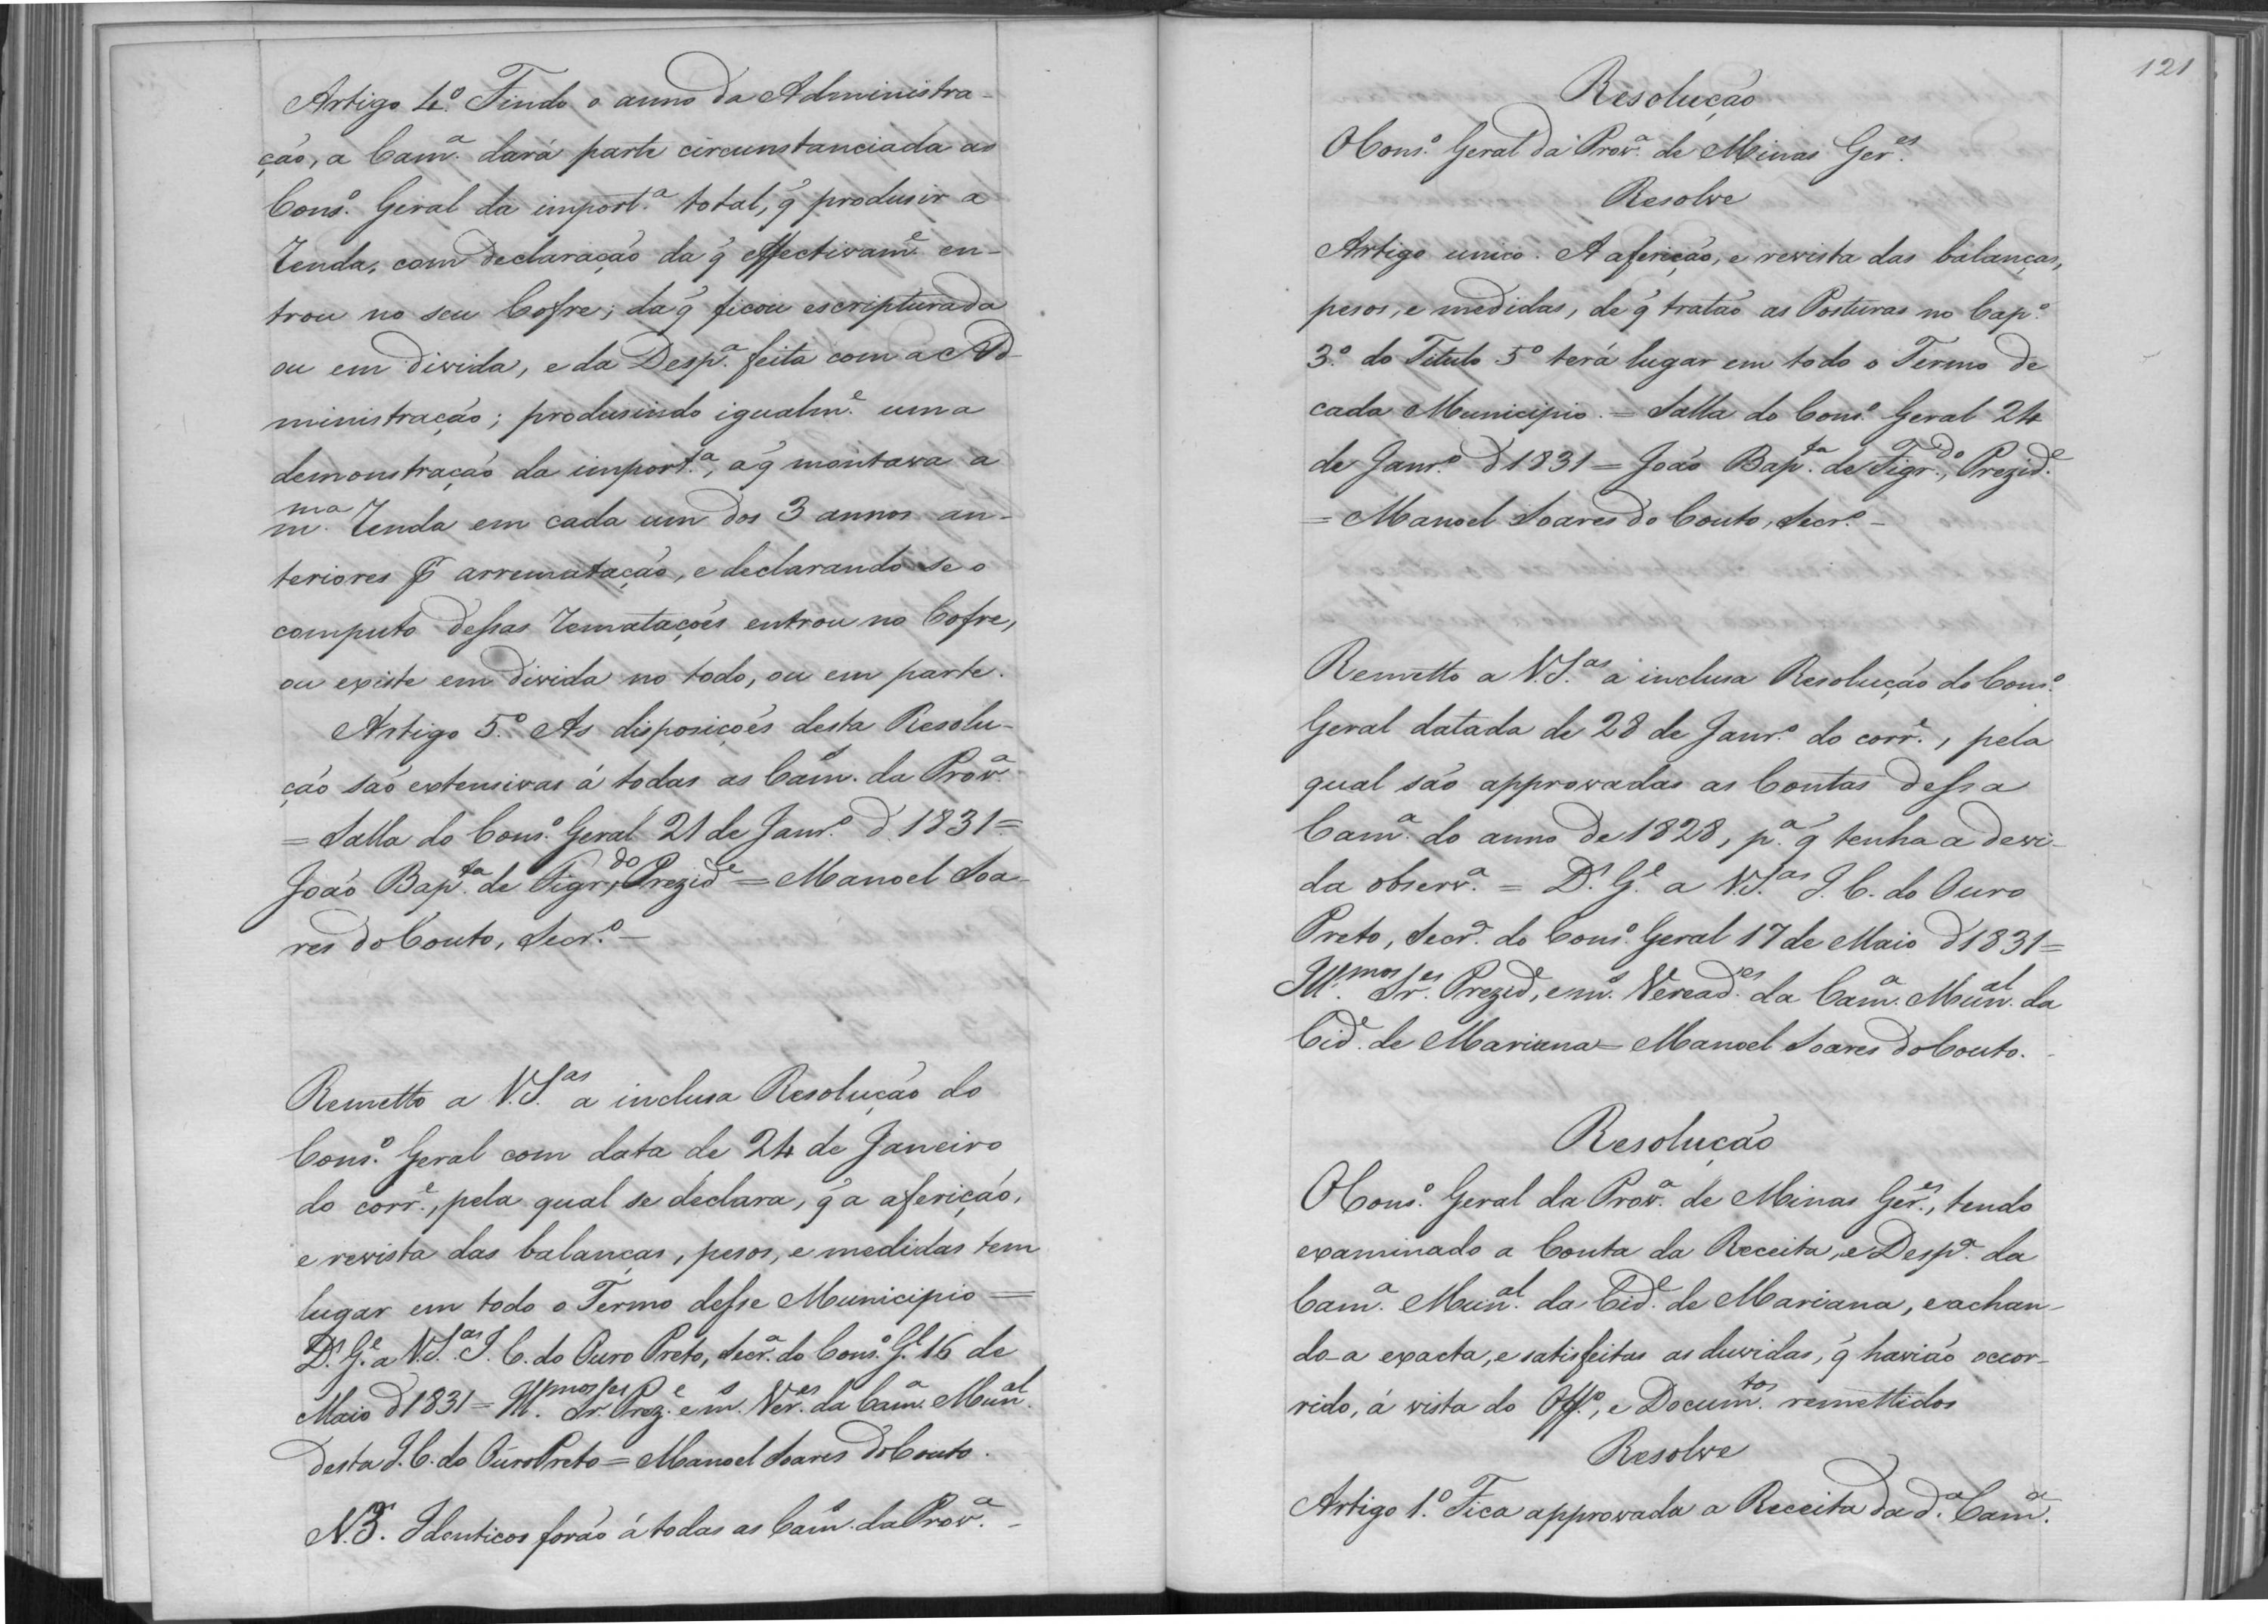 Artigo 4.º Findo o anno da Administra-
ção, a Cam.ª dará parte circunstanciada ao
Cons.º Geral da import.ª total, q̃ produsir a
Renda, com declaração da q̃ effectivam.e en-
trou no seu Cofre; da q̃ ficou escripturada
ou em divida, e da Desp.ª feita com a Ad-
ministração; produsindo igualm.e uma
demonstração da import.ª, á q̃ montava a
m.ma Renda em cada um dos 3 annos an-
teriores p̃ arrematação, e declarando se o
computo dessas rematações entrou no Cofre,
ou existe em divida no todo, ou em parte.
Artigo 5.º As disposições desta Resolu-
ção são extensivas á todas as Cam.s da Prov.ª
= Salla do Cons.º Geral 21 de Janr.º d' 1831 =
João Bap.ta de Figr.do, Prezid.e = Manoel Soa-
res do Couto, Secr.º —
Remetto a V.S.as a inclusa Resolução do
Cons.º Geral com data de 24 de Janeiro
do corr.e, pela qual se declara, q̃ a aferição,
e revista das balanças, pesos, e medidas tem
lugar em todo o Termo desse Municipio =
D.s G.e a V.S.as I. C. do Ouro Preto, Secr.ª do Cons.º G.l 16 de
Maio d' 1831 = Ill.mos Sr.es Prez.e e m.s Ver.es da Cam.ª Mun.al
desta I. C. do Ouro Preto = Manoel Soares do Couto.
N.B. Identicos forão á todas as Cam.s da Prov.ª —
121
Resolução
O Cons.º Geral da Prov.ª de Minas Ger.es
Resolve
Artigo unico. A aferição, e revista das balanças,
pesos, e medidas, de q̃ tratão as Posturas no Cap.º
3.º do Titulo 5º terá lugar em todo o Termo de
cada Municipio. = Salla do Cons.º Geral 24
de Janr.º d' 1831 = João Bap.ta de Figr.do, Prezid.e
= Manoel Soares do Couto, Secr.º —
Remetto a V.S.as a inclusa Resolução do Cons.º
Geral datada de 28 de Janr.º do corr.e, pela
qual são approvadas as Contas dessa
Cam.ª do anno de 1828, p.ª q̃ tenha a devi-
da observ.ª = D.s G.e a V.S.as I. C. do Ouro
Preto, Secr.ª do Cons.º Geral 17 de Maio d' 1831 =
Ill.mos Sr.es Prezid.e, e m.s Veread.es da Cam.ª Mun.al da
Cid.e de Mariana = Manoel Soares do Couto.
Resolução
O Cons.º Geral da Prov.ª de Minas Ger.es, tendo
examinado a Conta da Receita, e Desp.ª da
Cam.ª Mun.al da Cid.e de Mariana, e achan-
do-a exacta, e satisfeitas as duvidas, q̃ havião occor-
rido, á vista do Off.º, e Docum.tos remettidos
Resolve
Artigo 1.º Fica approvada a Receita da d.ª Cam.ª